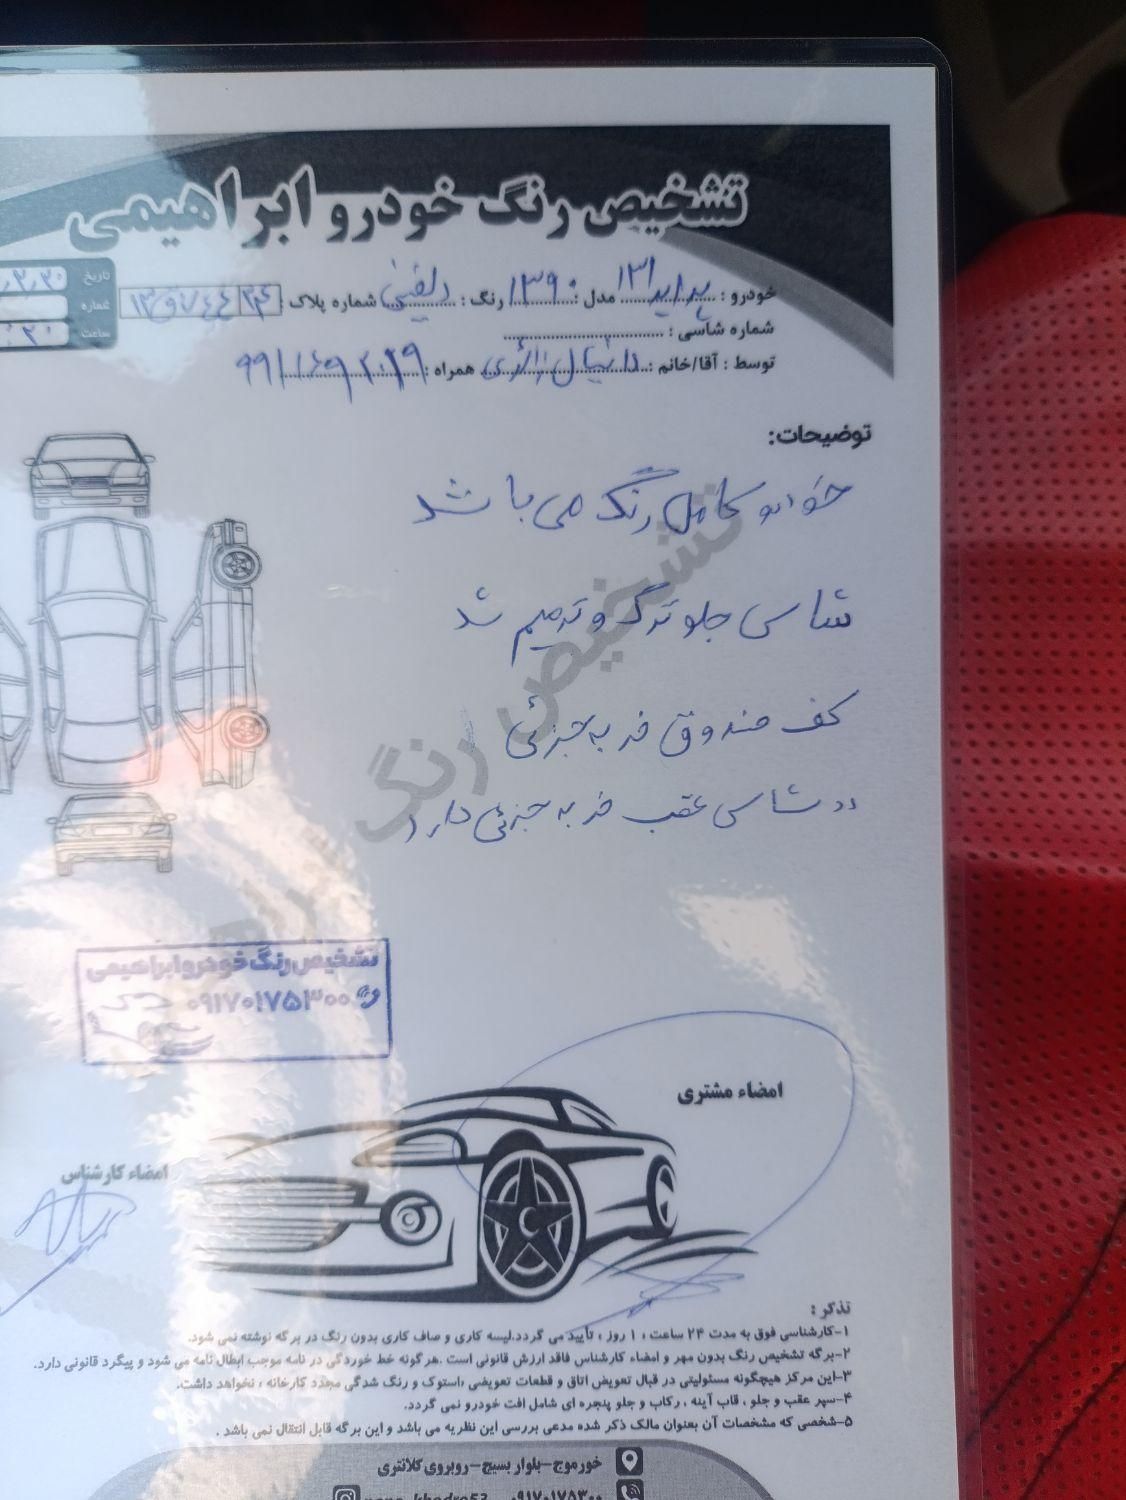 تشخیص رنگ خودرو ابراهیمی
تاریخ
شماره
ساعت
خودرو : پراید ۱۳۱ مدل : ۱۳۹۰ رنگ : دلفینی شماره پلاک :
شماره شاسی :
توسط : آقا/خانم : دانیال زائری همراه :
توضیحات:
خودرو کامل رنگ می باشد
شاسی جلو ترک و ترمیم شد
کف صندوق ضربه جزئی
دو شاسی عقب ضربه جزئی دارد
تشخیص رنگ
تشخیص رنگ خودرو ابراهیمی
۰۹۱۷۰۱۷۵۳۰۰
امضاء مشتری
امضاء کارشناس
تذکر :
۱-کارشناسی فوق به مدت ۲۴ ساعت ، ۱ روز ، تأیید می گردد.لیسه کاری و صاف کاری بدون رنگ در برگه نوشته نمی شود.
۲-برگه تشخیص رنگ بدون مهر و امضاء کارشناس فاقد ارزش قانونی است .هرگونه خط خوردگی در نامه موجب ابطال نامه می شود و پیگرد قانونی دارد.
۳-این مرکز هیچگونه مسئولیتی در قبال تعویض اتاق و قطعات تعویضی ،استوک و رنگ شدگی مجدد کارخانه ، نخواهد داشت.
۴-سپر عقب و جلو ، قاب آینه ، رکاب و جلو پنجره ای شامل افت خودرو نمی گردد.
۵-شخصی که مشخصات آن بعنوان مالک ذکر شده مدعی بررسی این نظریه می باشد و این برگه قابل انتقال نمی باشد .
خورموج-بلوار بسیج-روبروی کلانتری
۰۹۱۷۰۱۷۵۳۰۰